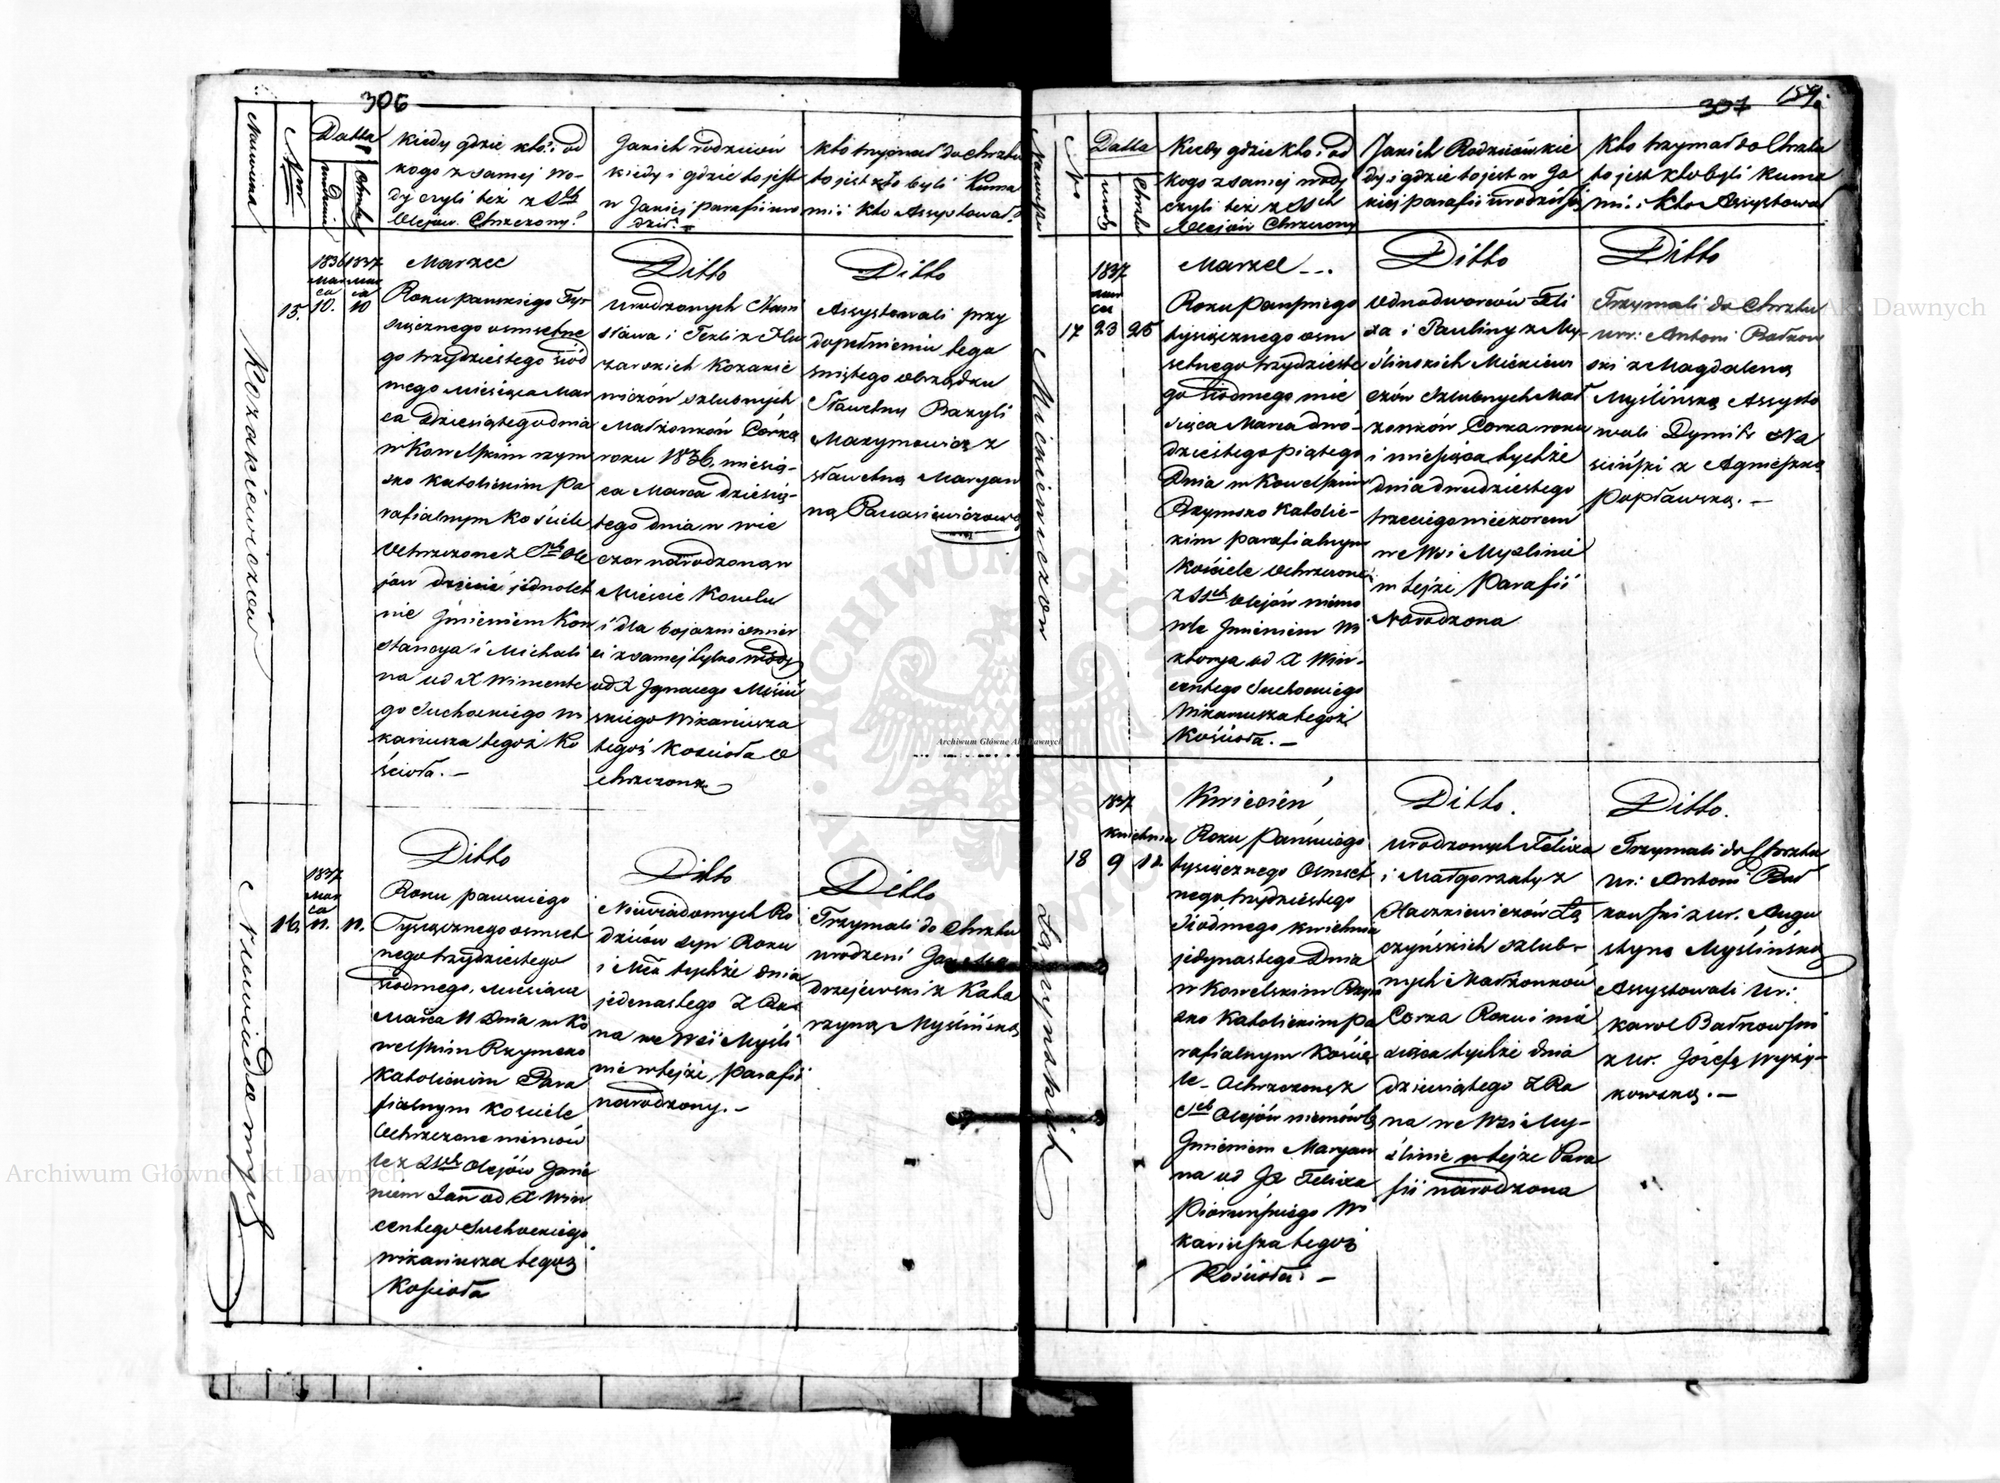 306
Nazwiska
Nro
Datta
urodzin
Chrztu
Kiedy gdzie kto i od
kogo z samej wo-
dy czyli też z SSch
Olejów Chrzczony?
Jakich rodziców
kiedy i gdzie to jest
w Jakiej parafii uro
dził.
Kto trzymał do chrztu
to jest kto byli Kuma
mi i kto Assystował
Kozakiewiczów
15.
1836
Marca
10.
1837
Marca
10
Marzec
Roku pańskiego Tys-
siącznego osmsetne
go trzydziestego siód
mego Miesiąca Mar
ca dziesiątego dnia
w Kowelskim rzym
sko Katolickim pa
rafialnym Kościele
Ochrzczone z SSch Ole
jów dziecie jednolet
nie Jmieniem Kon
stancya i Michali
na od X Wincente
go Suchockiego wi
kariusza tegoż Ko
ścioła. —
Ditto
Urodzonych Stani
sława i Tekli z
Kozakie
wiczów szlubnych
Małżonków Córka
roku 1836. miesią-
ca Marca dziesią-
tego dnia w wie
czor narodzona w
Mieście Kowlu
i dla bojazni śmier
ci z samej tylko wody
od X Jgnacego
skiego Wikariusza
tegoż Kościoła O
chrzczona
Ditto
Assystowali przy
dopełnieniu tego
świętego obrządku
Sławetny Bazyli
Maxymowicz z
sławetną Maryan
ną Panasiewiczową
Niewiadomych
16.
1837
Marca
11.
11.
Ditto
Roku pańskiego
Tysiącznego osmset
nego trzydziestego
siódmego, Miesiąca
Marca 11 Dnia w Ko
welskim Rzymsko
Katolickim Para
fialnym Kościele
Ochrzczone niemów
le z SSch Olejów Jmie
niem Jan od X Win
centego Suchockiego
wikariusza tegoż
Kościoła
Ditto
Niewiadomych Ro
dziców syn Roku
i Mca tychże dnia
jedenastego z Ra-
na we Wsi Myśli
nie w tejże parafii
narodzony. —
Ditto
Trzymali do Chrztu
urodzeni Jan An
drzejewski z Kata
rzyną Myślińską
307
154.
Nazwiska
Nro
Datta
urodz
Chrztu
Kiedy gdzie kto i od
kogo z samej wody
czyli też z SSch
Olejów Chrzczony
Jakich Rodziców kie
dy i gdzie to jest w Ja
kiej parafii urodził się
Kto trzymał do Chrztu
to jest kto byli Kuma
mi i kto Assystował
Mickiewiczow
17
1837
Marca
23
25
Marzec - - .
Roku Pańskiego
tysiącznego osm
setnego trzydzieste
go siódmego mie
siąca Marca dwó-
dziestego piątego
Dnia w Kowelskim
Rzymsko Katolic-
kim parafialnym
Kościele Ochrzczone
z SSch Olejów niemo
wle Jmieniem Wi
ktorya od X Win-
centego Suchockiego
Wikariusza tegoż
Kościoła. —
Ditto
Odnodworców Feli
xa i Pauliny z My-
ślinskich Mickiewi
czów Szlubnych Mał
żonków Corka roku
i miesiąca tychże
dnia dwudziestego
trzeciego wieczorem
we Wsi Myślinie
w tejże Parafii
Narodzona
Ditto
Trzymali do Chrztu
Ur: Antoni Bałkow
ski z Magdaleną
Myślińską Assysto
wali Dymitr
z Agnieszką
Popławską. —
Łączyńskich
18
1837
kwietnia
9
11.
Kwiecień
Roku Pańskiego
tysiącznego Osmset
nego trzydziestego
siódmego kwietnia
jedynastego Dnia
w Kowelskim Rzym
sko Katolickim pa
rafialnym Koście
le Ochrzczona z
SSch Olejów niemówlę
Jmieniem Maryan
na od JX Felixa
Piorunskiego Wi
kariusza tegoż
Kościoła: —
Ditto.
Urodzonych Felixa
i Małgorzaty z
Haczkiewiczów Łą
czyńskich szlub-
nych Małżonków
Corka Roku i mie
siąca tychże dnia
dziewiątego z Ra
na we Wsi My-
ślinie w tejże Para
fii narodzona
Ditto.
Trzymali do Chrztu
Ur: Antoni Bał
kowski z ur. Augu
styną Myślińską
Assystowali Ur:
Karol Bałkowski
z ur. Józefą
kowską. —
Archiwum Główne Akt Dawnych
Archiwum Główne Akt Dawnych
Archiwum Główne Akt Dawnych